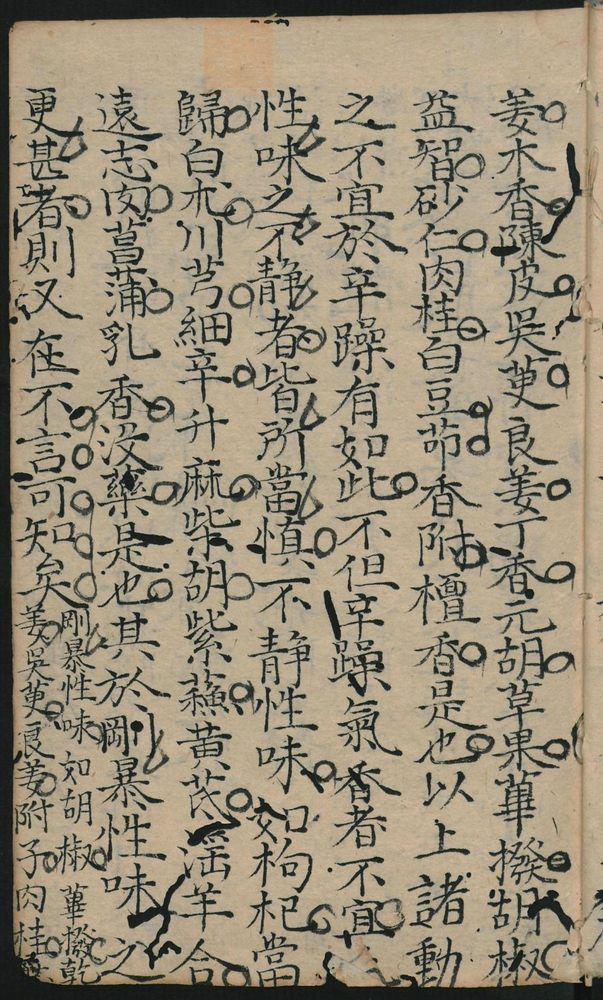 姜木香陳皮吳萸良姜丁香元胡草果蓽撥胡椒
益智砂仁肉桂白豆茆香附檀香是也以上諸動
之不宜於辛躁有如此不但辛躁氣香者不宜
性味之不静者皆所當慎不静性味如枸杞當
歸白朮川芎細辛升麻柴胡紫蘓黃芪滛羊合
遠志肉菖蒲乳香没藥是也其於剛暴性味之
更甚者則又在不言可知矣
剛暴性味如胡椒蓽撥乾
姜吳萸良姜附子肉桂